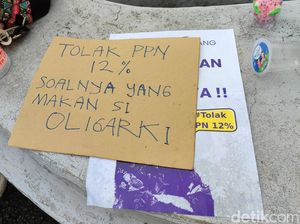 TOLAK PPN
12%
SOALNYA YANG
MAKAN SI
OLIGARKI
ANG
AN
A !!
#Tolak
PPN 12%
detikcom